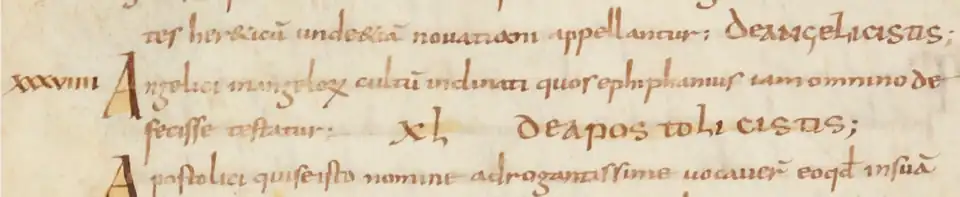 tes hereticū undeetiā novatiani appellantur; deangelicistis;
xxxviiii Angelici inangeloꝝ cultū inclinati quos ephiphanius iamomnino de
fecisse testatur; xl deapostolicistis;
Apostolici quiseisto nomine adrogantissime uocauer̄ eoqđ insuā